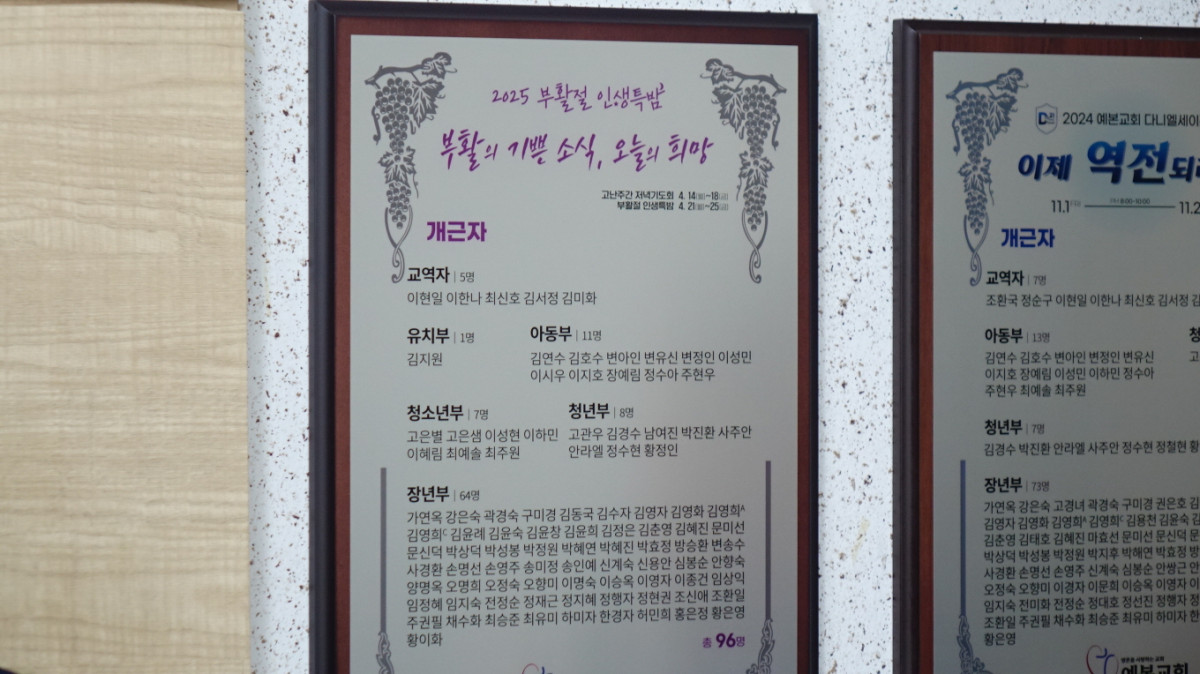 2025 부활절 인생특밤
부활의 기쁜 소식, 오늘의 희망
고난주간 저녁기도회 4. 14(월)~18(금)
부활절 인생특밤 4. 21(월)~25(금)
개근자
교역자 | 5명
이현일 이한나 최신호 김서정 김미화
유치부 | 1명
김지원
아동부 | 11명
김연수 김호수 변아인 변유신 변정인 이성민
이시우 이지호 장예림 정수아 주현우
청소년부 | 7명
고은별 고은샘 이성현 이하민
이혜림 최예솔 최주원
청년부 | 8명
고관우 김경수 남여진 박진환 사주안
안라엘 정수현 황정인
장년부 | 64명
가연옥 강은숙 곽경숙 구미경 김동국 김수자 김영자 김영화 김영희A
김영희C 김윤례 김윤숙 김윤창 김윤희 김정은 김춘영 김혜진 문미선
문신덕 박상덕 박성봉 박정원 박혜연 박혜진 박효정 방승환 변송수
사경환 손명선 손영주 송미정 송인예 신계숙 신용안 심봉순 안향숙
양명옥 오명희 오정숙 오향미 이명숙 이승옥 이영자 이종건 임상익
임정혜 임지숙 전정순 정재근 정지혜 정행자 정현권 조신애 조환일
주권필 채수화 최승준 최유미 하미자 한경자 허민희 홍은정 황은영
황이화
총 96명
2024 예본교회 다니엘세이
이제 역전되
11.1
11.2
개근자
교역자 | 7명
조환국 정순구 이현일 이한나 최신호 김서정
아동부 | 13명
김연수 김호수 변아인 변정인 변유신
이지호 장예림 이성민 이하민 정수아
주현우 최예솔 최주원
청년부 | 7명
김경수 박진환 안라엘 사주안 정수현 정철현 황
장년부 | 73명
가연옥 강은숙 고경녀 곽경숙 구미경 권은호
김영자 김영화 김영희A 김영희C 김용천 김윤숙
김춘영 김태호 김혜진 마효선 문미선 문신덕
박상덕 박성봉 박정원 박지후 박혜연 박효정
사경환 손명선 손영주 신계숙 심봉순 안쌍근
오정숙 오향미 이경자 이문희 이승옥 이영자
임지숙 전미화 전정순 정대호 정선진 정행자
조환일 주권필 채수화 최승준 최유미 하미자
황은영
예본교회